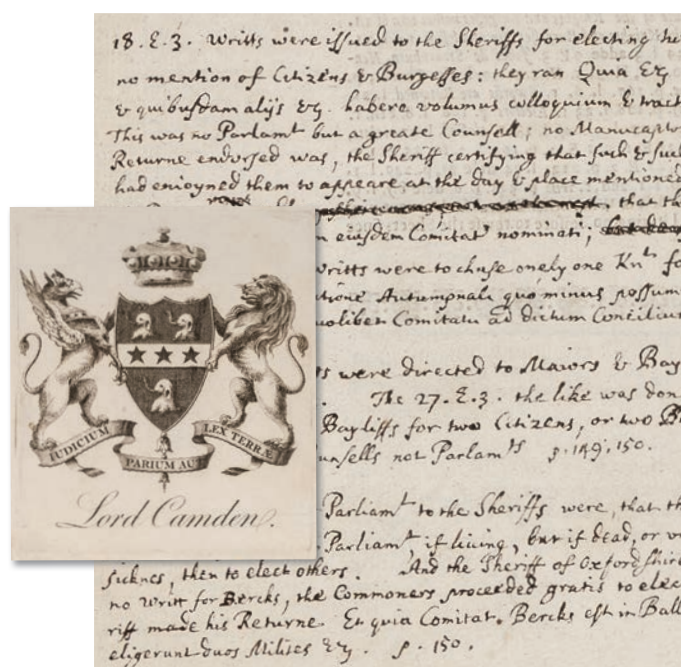 18. E. 3. Writts were issued to the Sheriffs for electing
no mention of Citizens & Burgesses: they ran Quia &c
& quibusdam alijs &c. habere volumus colloquium & tract
This was no Parlamt but a greate Counsell; no Manucapto
Returne endorsed was, the Sheriff certifying that such & suc
had enioyned them to appeare at the day & place mentioned
that th
eiusdem Comitat' nominati;
writts were to chuse onely one Knt fo
tione Autumpnali quo minus possum
uolibet Comitatu ad dictum Conciliu
were directed to Maiors & Bay
The 27. E. 3. the like was don
Bayliffs for two Citizens, or two B
unsells not Parlamts p. 149. 150.
Parliamt to the Sheriffs were, that th
Parliamt, if living, but if dead, or
sicknes, then to elect others. And the Sheriff of Oxfordshir
no writt for Bercks, the Commoners proceeded gratis to elec
riff made his Returne Et quia Comitat. Bercks est in Ball
eligerunt duos Milites &c. p. 150.
IUDICIUM PARIUM AU LEX TERRÆ
Lord Camden.